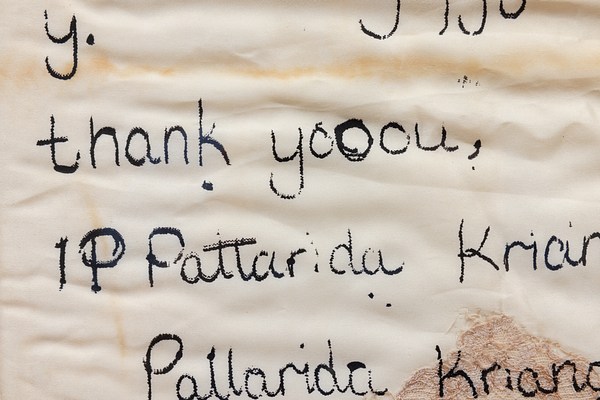 y.
thank yooou,
1P Pattarida Krian
Pallarida Kriang